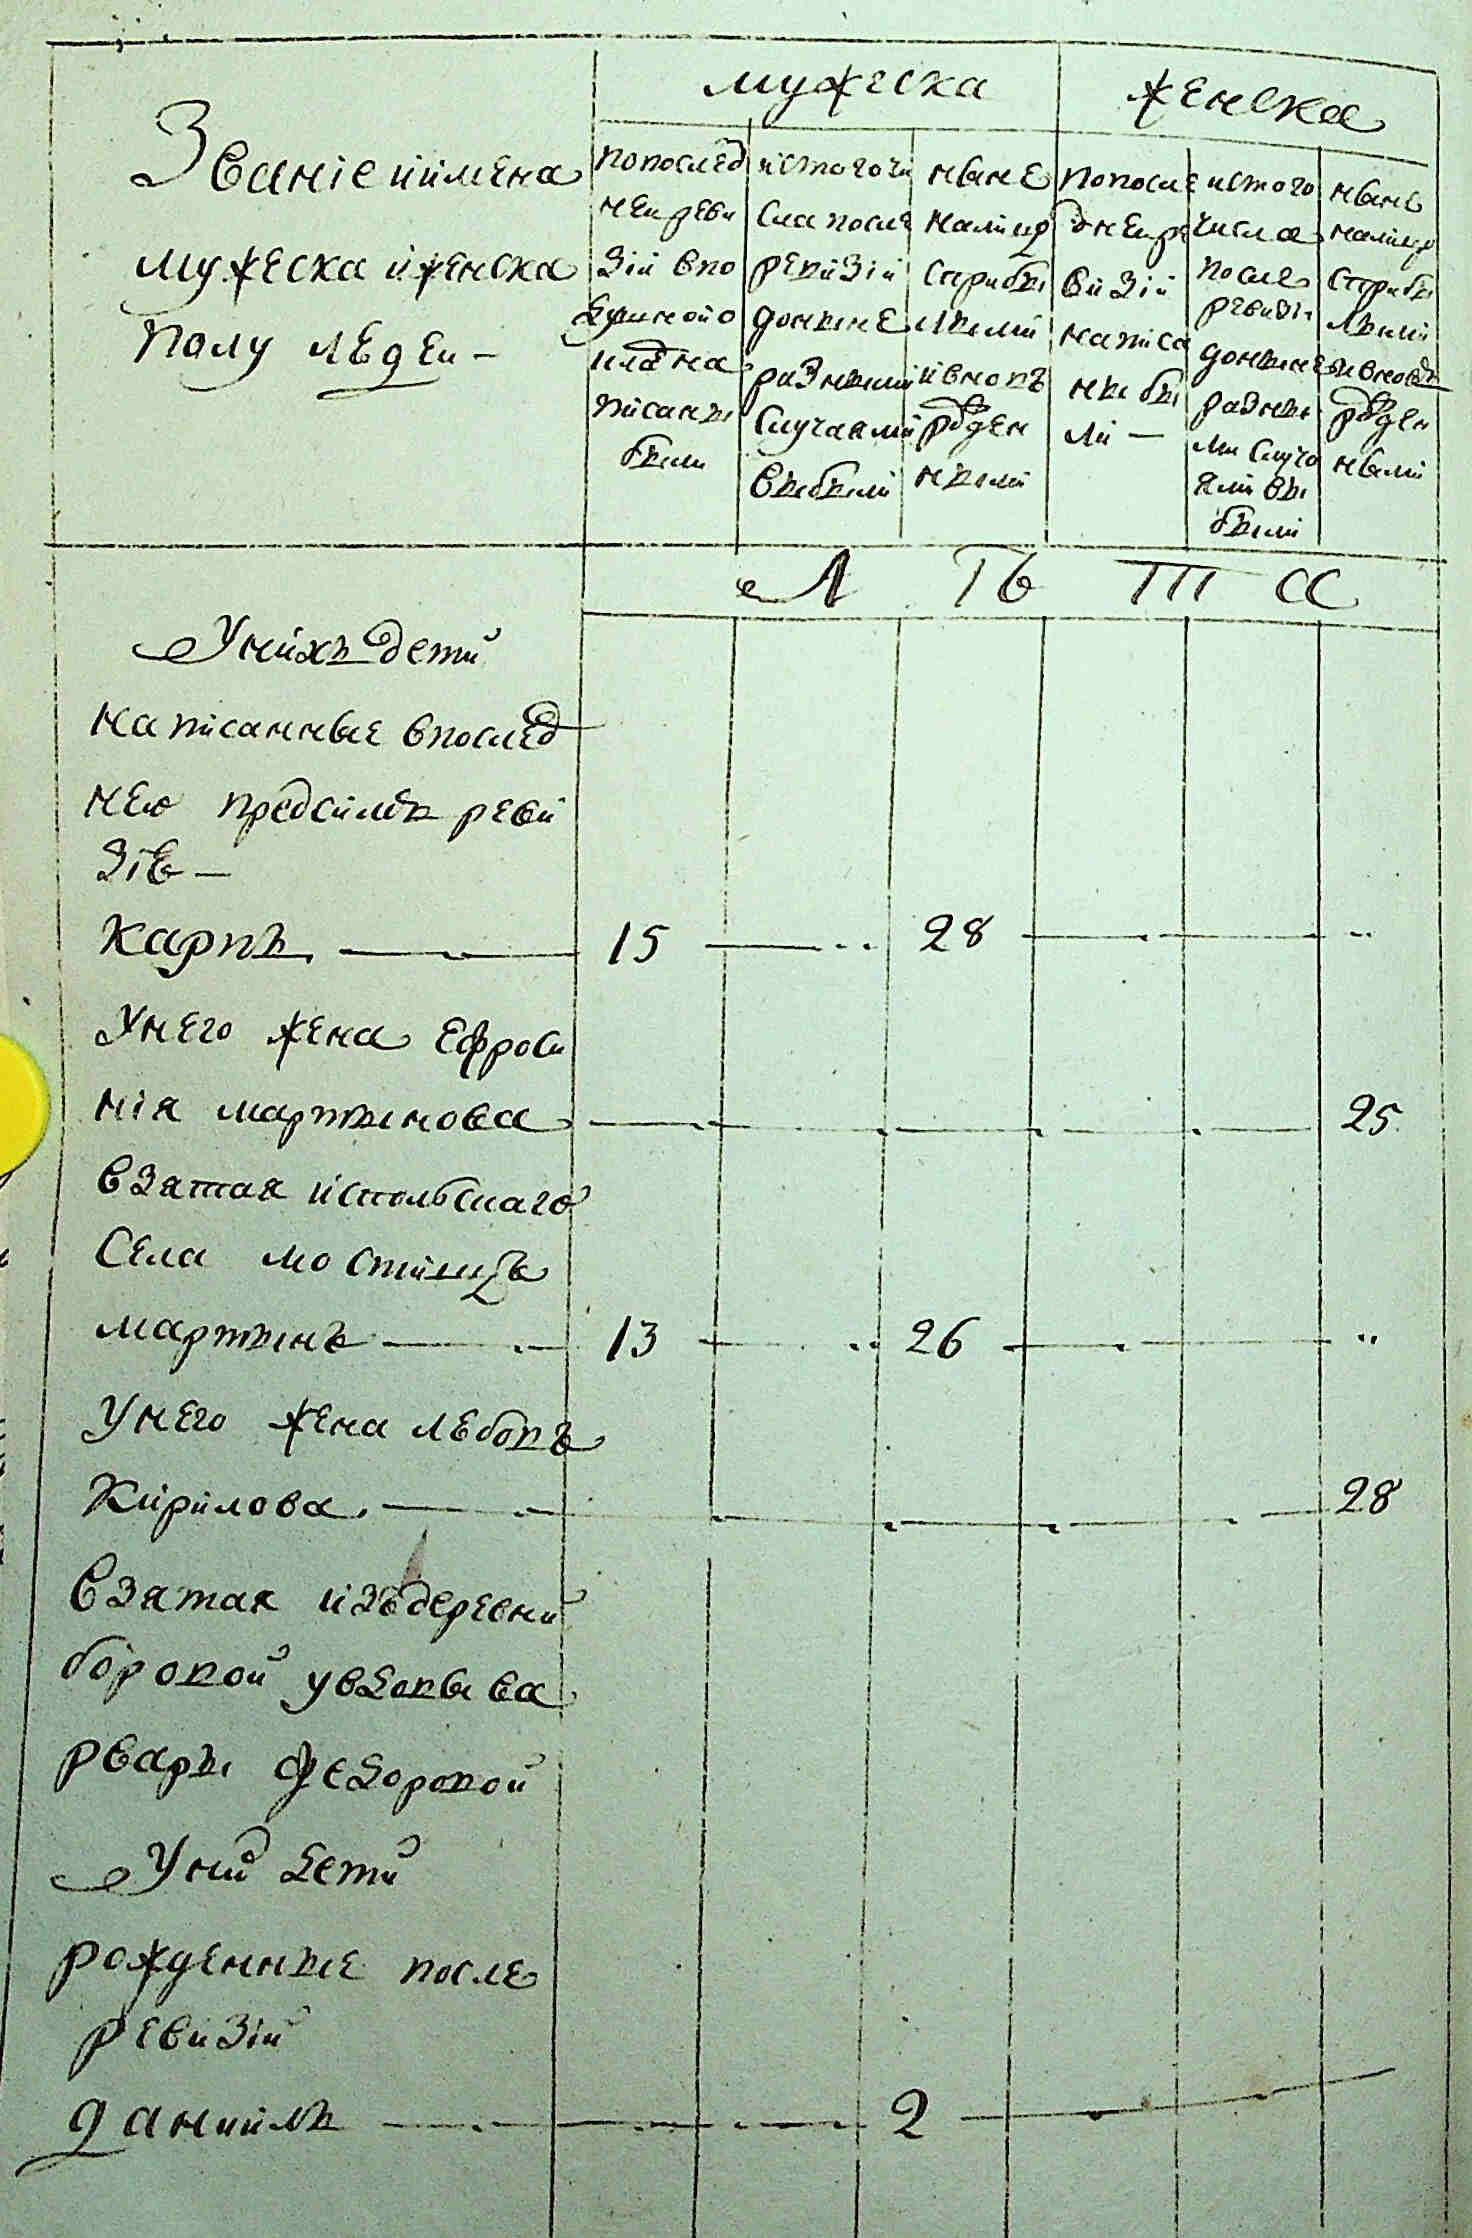 мужеска
женска
Званіе иимена
мужеска иженска
полу людеи —
попослед
неи реви
зіи впо
душной о
кладъ на
писаны
были
истогочи
сла после
ревизіи
донынѣ
разными
случаями
выбыли
нынѣ
налицо
старыбы
лыми
ивновъ
рожден
ными
попосле
днеи ре
визіи
написа
ны бы
ли —
истого
числа
после
ревизіи
донынѣ
разны
ми случа
ями вы
были
нынѣ
налицо
старыбы
лыми
ивновъ
рожден
ными
Л Ѣ Т А
Унихъ дети
написанные впослед
нею предсимъ реви
зію —
Карпъ 15 28
Унего жена Ефроси
нія мартынова 25
взятая истольскаго
Села мостищъ
мартынъ 13 26
Унего жена любовъ
Кирилова 28
взятая изъ деревни
боровой увдовы ва
рвары федоровой
Уних дети
рожденные после
ревизіи
данииль 2